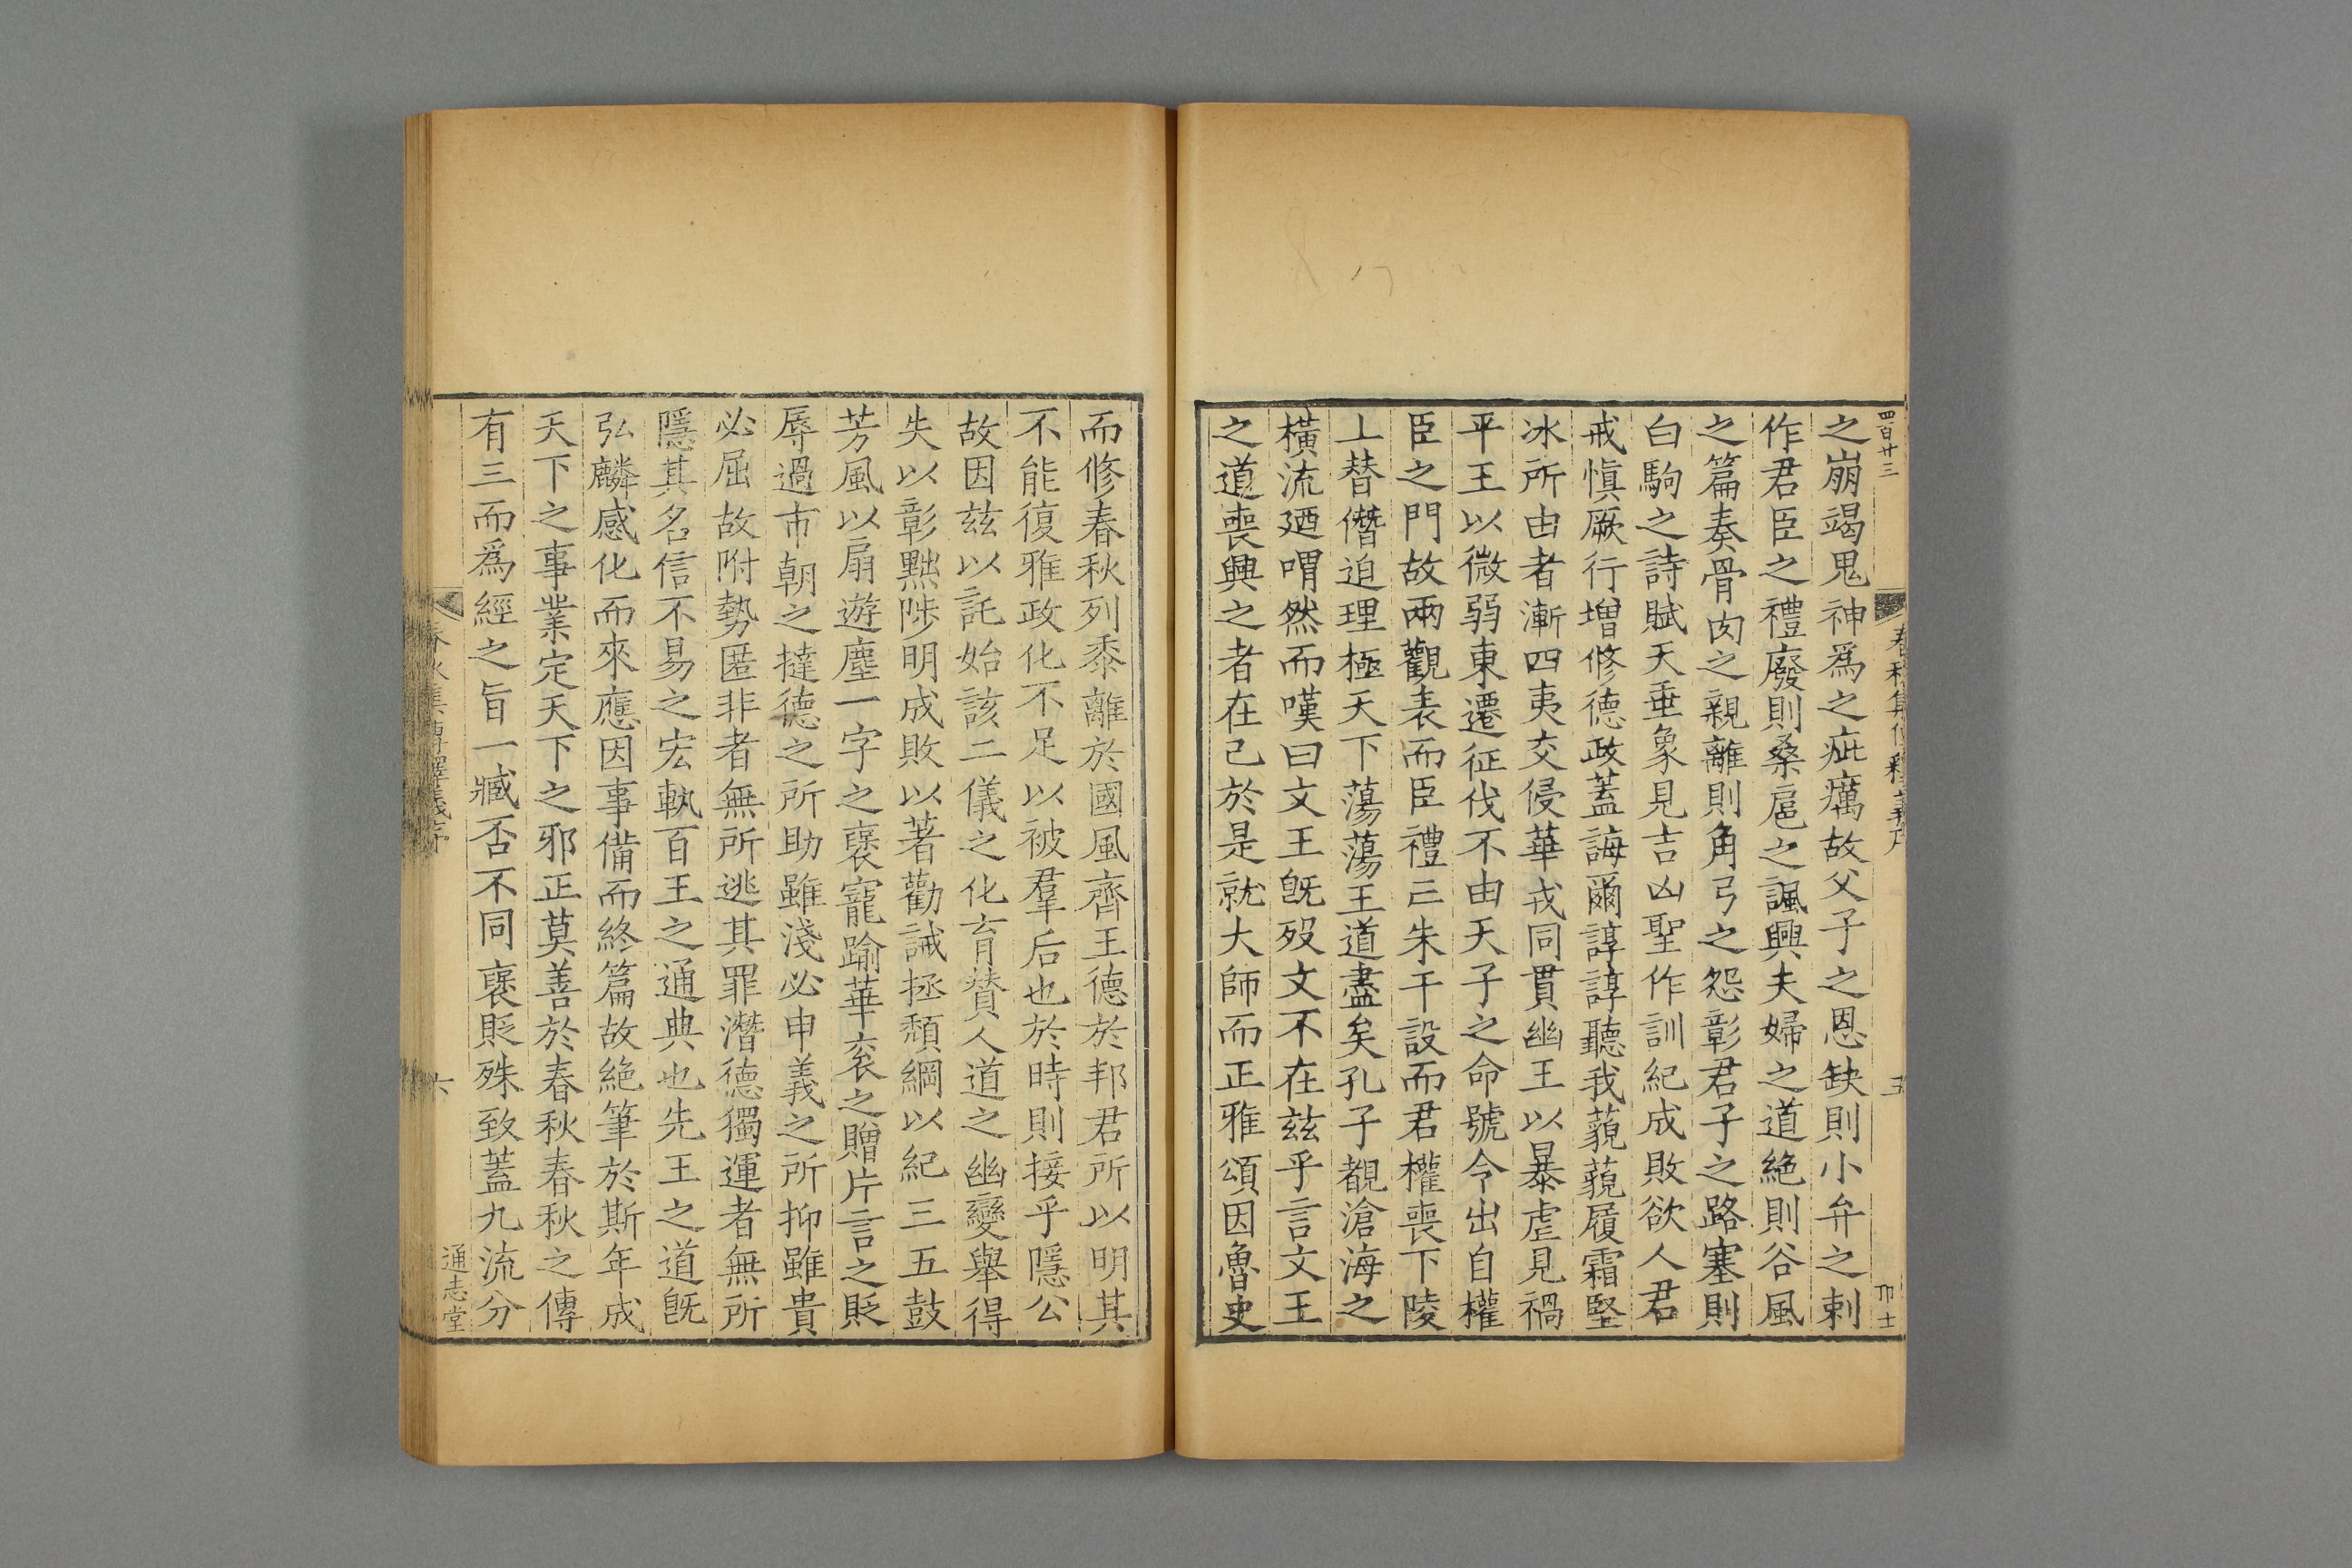 四百廿三
春秋集傳釋義序
五
之崩竭鬼神爲之疵癘故父子之恩缺則小弁之刺
作君臣之禮廢則桑扈之諷興夫婦之道絶則谷風
之篇奏骨肉之親離則角弓之怨彰君子之路塞則
白駒之詩賦天垂象見吉凶聖作訓紀成敗欲人君
戒愼厥行增修德政蓋誨爾諄諄聽我藐藐履霜堅
冰所由者漸四夷交侵華戎同貫幽王以暴虐見禍
平王以微弱東遷征伐不由天子之命號令出自權
臣之門故兩觀表而臣禮亡朱干設而君權喪下陵
上替僭迫理極天下蕩蕩王道盡矣孔子覩滄海之
橫流廼喟然而嘆曰文王旣歿文不在兹乎言文王
之道喪興之者在己於是就大師而正雅頌因魯史
而修春秋列黍離於國風齊王德於邦君所以明其
不能復雅政化不足以被羣后也於時則接乎隱公
故因兹以託始該二儀之化育賛人道之幽變舉得
失以彰黜陟明成敗以著勸誡拯頹綱以紀三五鼓
芳風以扇遊塵一字之褒寵踰華衮之贈片言之貶
辱過市朝之撻德之所助雖淺必申義之所抑雖貴
必屈故附勢匿非者無所逃其罪潛德獨運者無所
隱其名信不易之宏軌百王之通典也先王之道旣
弘麟感化而來應因事備而終篇故絶筆於斯年成
天下之事業定天下之邪正莫善於春秋春秋之傳
有三而爲經之旨一臧否不同褒貶殊致蓋九流分
春秋集傳釋義序
六
通志堂